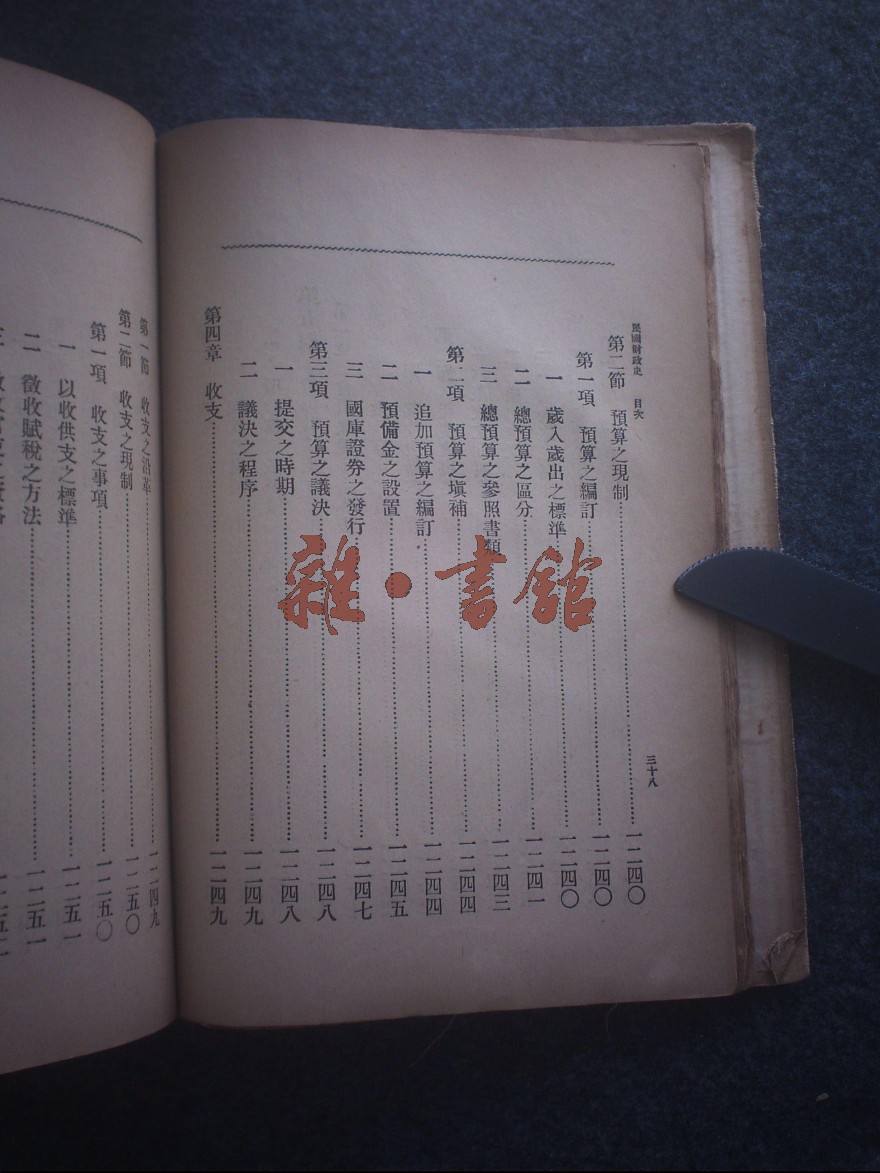 民國財政史　目次
三十八
第二節　預算之現制……一二四〇
第一項　預算之編訂……一二四〇
一　歲入歲出之標準……一二四〇
二　總預算之區分……一二四一
三　總預算之參照書類……一二四三
第二項　預算之塡補……一二四四
一　追加預算之編訂……一二四四
二　預備金之設置……一二四五
三　國庫證劵之發行……一二四七
第三項　預算之議決……一二四八
一　提交之時期……一二四八
二　議決之程序……一二四九
第四章　收支……一二四九
第一節　收支之沿革……一二四九
第二節　收支之現制……一二五〇
第一項　收支之事項……一二五〇
一　以收供支之標準……一二五一
二　徵收賦稅之方法……一二五一
雜·書館